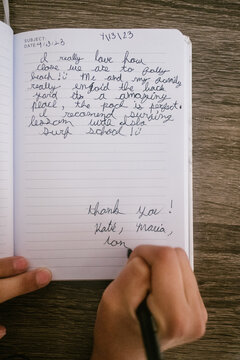 SUBJECT:
DATE: 4/3/23
7/13/23
I really love how
close we ate to Jolly
beach! :) Me and my family
really enjoid the back
yard its a amazing
place, the pool is perfect.
I recomend surving
lesson with
surf school! :)
Thank You!
Katie, Maria,